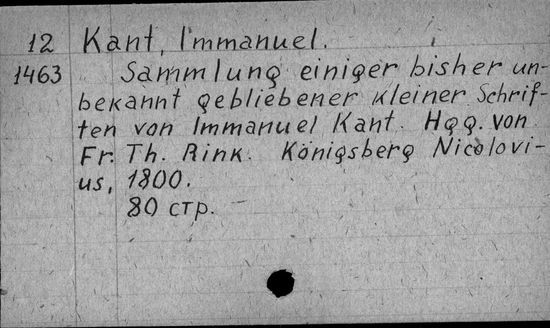 12 Kant, Immanuel.
1463 Sammlung einiger bisher un-
bekannt gebliebener kleiner Schrif-
ten von Immanuel Kant. Hgg. von
Fr. Th. Rink. Königsberg Nicolovi-
us, 1800.
80 стр.